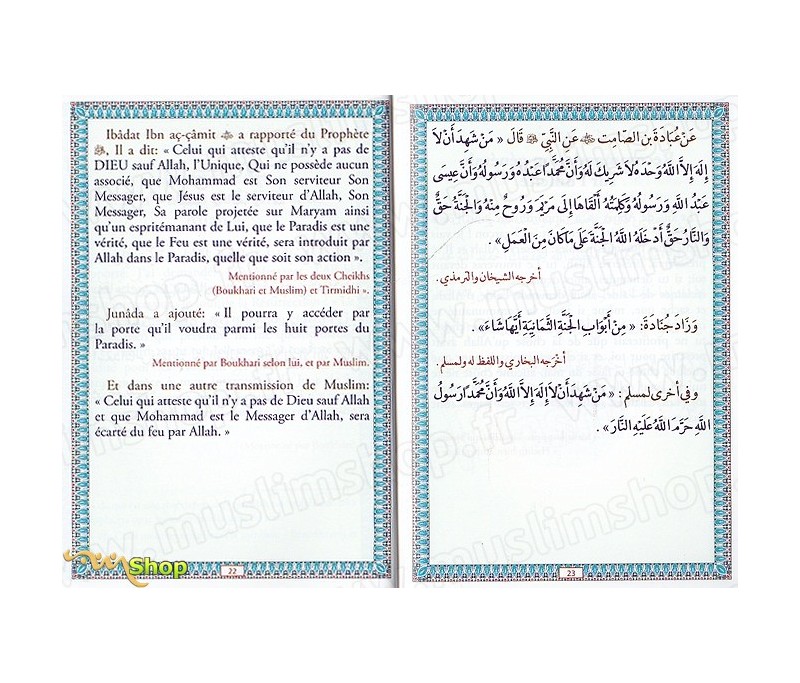 Ibâdat Ibn aç-çâmit ﷺ a rapporté du Prophète
ﷺ, Il a dit: « Celui qui atteste qu'il n'y a pas de
DIEU sauf Allah, l'Unique, Qui ne possède aucun
associé, que Mohammad est Son serviteur Son
Messager, que Jésus est le serviteur d'Allah, Son
Messager, Sa parole projetée sur Maryam ainsi
qu'un espritémanant de Lui, que le Paradis est une
vérité, que le Feu est une vérité, sera introduit par
Allah dans le Paradis, quelle que soit son action ».
Mentionné par les deux Cheikhs
(Boukhari et Muslim) et Tirmidhi ».
Junâda a ajouté: « Il pourra y accéder par
la porte qu'il voudra parmi les huit portes du
Paradis. »
Mentionné par Boukhari selon lui, et par Muslim.
Et dans une autre transmission de Muslim:
« Celui qui atteste qu'il n'y a pas de Dieu sauf Allah
et que Mohammad est le Messager d'Allah, sera
écarté du feu par Allah. »
22
Shop
عَنْ عُبَادَةَ بنِ الصَّامِتِ عَنِ النَّبِيِّ ﷺ قَالَ « مَنْ شَهِدَ أَنْ لَا
إِلَهَ إِلَّا اللَّهُ وَحْدَهُ لَا شَرِيكَ لَهُ وَأَنَّ مُحَمَّدًا عَبْدُهُ وَرَسُولُهُ وَأَنَّ عِيسَى
عَبْدُ اللَّهِ وَرَسُولُهُ وَكَلِمَتُهُ أَلْقَاهَا إِلَى مَرْيَمَ وَرُوحٌ مِنْهُ وَالْجَنَّةُ حَقٌّ
وَالنَّارُ حَقٌّ أَدْخَلَهُ اللَّهُ الْجَنَّةَ عَلَى مَا كَانَ مِنَ الْعَمَلِ » .
أخرجه الشيخان والترمذي.
وَزَادَ جُنَادَةُ: « مِنْ أَبْوَابِ الْجَنَّةِ الثَّمَانِيَةِ أَيِّهَا شَاءَ » .
أخرجه البخاري واللفظ له ولمسلم.
وفي أخرى لمسلم: « مَنْ شَهِدَ أَنْ لَا إِلَهَ إِلَّا اللَّهُ وَأَنَّ مُحَمَّدًا رَسُولُ
اللَّهِ حَرَّمَ اللَّهُ عَلَيْهِ النَّارَ » .
23
www.muslimshop.fr